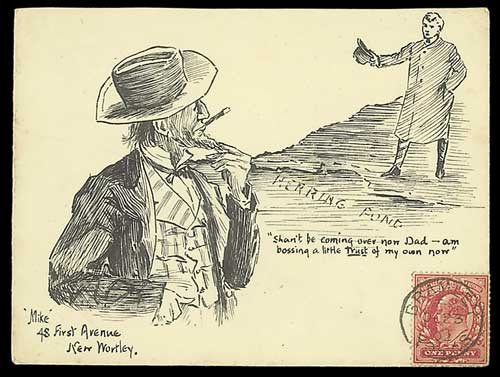 HERRING POND
"Shan't be coming over now Dad — am
bossing a little Trust of my own now"
"Mike"
48 First Avenue
New Wortley.
ONE PENNY